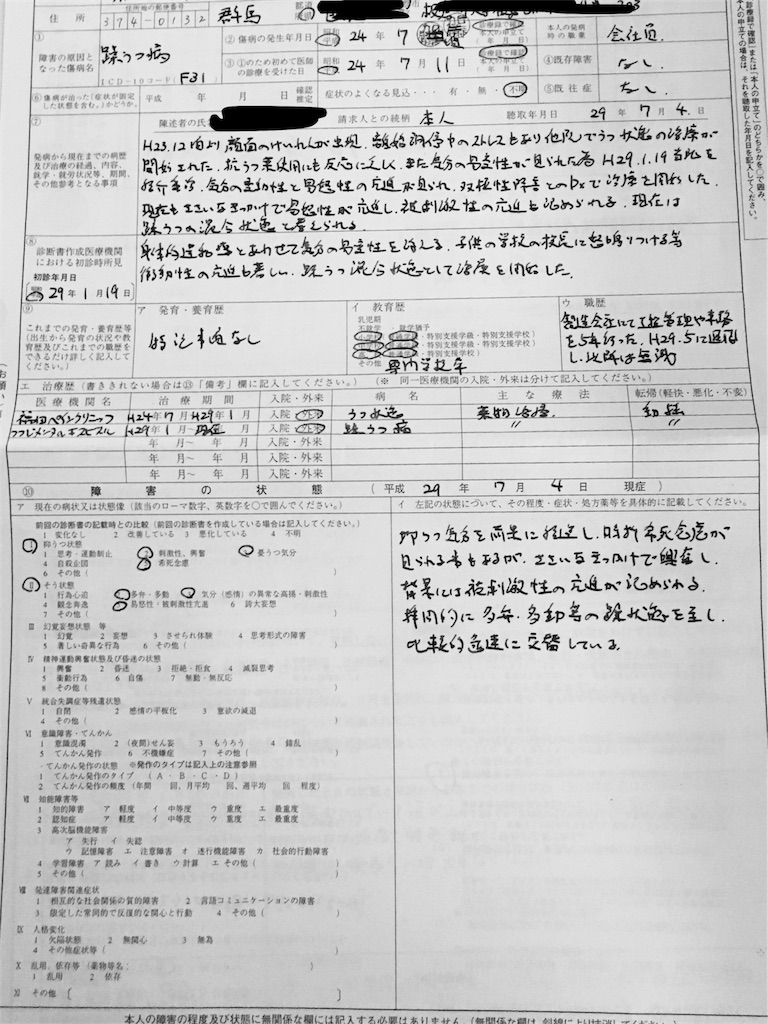 診療録で確認」または「本人の申立て」のどちらかを○で囲み、
本人の申立ての場合は、それを聴取した年月日を記入してください。
住所
住所地の郵便番号
374-0132
群馬
都道
①
障害の原因と
なった傷病名
躁うつ病
ICD-10コード(F31)
② 傷病の発生年月日
昭和
平成
24年7月
診療録で確認
本人の申立て
(年月日)
本人の発病
時の職業
会社員
③ ①のため初めて医師
の診療を受けた日
昭和
平成
24年7月11日
診療録で確認
本人の申立て
(年月日)
④既存障害
なし
⑥傷病が治った(症状が固定
した状態を含む。)かどうか。
平成 年 月 日
確認
推定
症状のよくなる見込・・・有・無・不明
⑤既往症
なし
⑦
発病から現在までの病歴
及び治療の経過、内容、
就学・就労状況等、期間、
その他参考となる事項
陳述者の氏名
請求人との続柄 本人
聴取年月日 29年7月4日
H23.12頃より顔面のけいれんが出現、離婚調停中のストレスもあり他院でうつ状態の治療が
開始された。抗うつ薬使用にも反応に乏しく、また気分の易変性が見られた為H29.1.19当院を
気分の変動性と易怒性の亢進が見られ、双極性障害とのDxで治療を開始した。
現在もささいなきっかけで易怒性が亢進し、被刺激性の亢進も認められる。現在は
躁うつの混合状態と考えられる。
⑧
診断書作成医療機関
における初診時所見
初診年月日
29年1月19日
気分の易変性を訴える。子供の学校の校長に怒鳴りつける等
衝動性の亢進も著しい。躁うつ混合状態として治療を開始した。
⑨
これまでの発育・養育歴等
(出生から発育の状況や教
育歴及びこれまでの職歴を
できるだけ詳しく記入して
ください。)
ア 発育・養育歴
特記事項なし
イ 教育歴
乳児期
不就学・就学猶予
小学校(普通学級・特別支援学級・特別支援学校)
中学校(普通学級・特別支援学級・特別支援学校)
高校(普通学級・特別支援学校)
その他 専門学校卒
ウ 職歴
製造会社にて工程管理や事務
を5年行った。H29.5に退職
し、以降は無職
エ 治療歴(書ききれない場合は⑬「備考」欄に記入してください。)(※ 同一医療機関の入院・外来は分けて記入してください。)
医療機関名 治療期間 入院・外来 病名 主な療法 転帰(軽快・悪化・不変)
ペインクリニック H24年7月〜H29年1月 入院・外来 うつ病 薬物治療
つつじメンタルホスピタル H29年1月〜現在 入院・外来 躁うつ病 〃 〃
年 月〜 年 月 入院・外来
年 月〜 年 月 入院・外来
年 月〜 年 月 入院・外来
⑩ 障害の状態(平成 29年7月4日 現症)
ア 現在の病状又は状態像(該当のローマ数字、英数字を○で囲んでください。)
前回の診断書の記載時との比較(前回の診断書を作成している場合は記入してください。)
1 変化なし 2 改善している 3 悪化している 4 不明
Ⅰ 抑うつ状態
1 思考・運動制止 2 刺激性、興奮 3 憂うつ気分
4 自殺企図 5 希死念慮
6 その他( )
Ⅱ そう状態
1 行為心迫 2 多弁・多動 3 気分(感情)の異常な高揚・刺激性
4 観念奔逸 5 易怒性・被刺激性亢進 6 誇大妄想
7 その他( )
Ⅲ 幻覚妄想状態 等
1 幻覚 2 妄想 3 させられ体験 4 思考形式の障害
5 著しい奇異な行為 6 その他( )
Ⅳ 精神運動興奮状態及び昏迷の状態
1 興奮 2 昏迷 3 拒絶・拒食 4 滅裂思考
5 衝動行為 6 自傷 7 無動・無反応
8 その他( )
Ⅴ 統合失調症等残遺状態
1 自閉 2 感情の平板化 3 意欲の減退
4 その他( )
Ⅵ 意識障害・てんかん
1 意識混濁 2 (夜間)せん妄 3 もうろう 4 錯乱
5 てんかん発作 6 不機嫌症 7 その他( )
・てんかん発作の状態 ※発作のタイプは記入上の注意参照
1 てんかん発作のタイプ(A・B・C・D)
2 てんかん発作の頻度(年間 回、月平均 回、週平均 回 程度)
Ⅶ 知能障害等
1 知的障害 ア 軽度 イ 中等度 ウ 重度 エ 最重度
2 認知症 ア 軽度 イ 中等度 ウ 重度 エ 最重度
3 高次脳機能障害
ア 失行 イ 失認
ウ 記憶障害 エ 注意障害 オ 遂行機能障害 カ 社会的行動障害
4 学習障害 ア 読み イ 書き ウ 計算 エ その他( )
5 その他( )
Ⅷ 発達障害関連症状
1 相互的な社会関係の質的障害 2 言語コミュニケーションの障害
3 限定した常同的で反復的な関心と行動 4 その他( )
Ⅸ 人格変化
1 欠陥状態 2 無関心 3 無為
4 その他症状等( )
Ⅹ 乱用、依存等(薬物等名: )
1 乱用 2 依存
Ⅺ その他〔 〕
イ 左記の状態について、その程度・症状・処方薬等を具体的に記載してください。
抑うつ気分を両価に経過し、時折希死念慮が
見られる事もあるが、ささいなきっかけで興奮し、
背景には被刺激性の亢進が認められる。
挿間的に多弁・多動等の躁状態を呈し、
比較的急速に交替している。
本人の障害の程度及び状態に無関係な欄には記入する必要はありません。(無関係な欄は、斜線により抹消してください。)